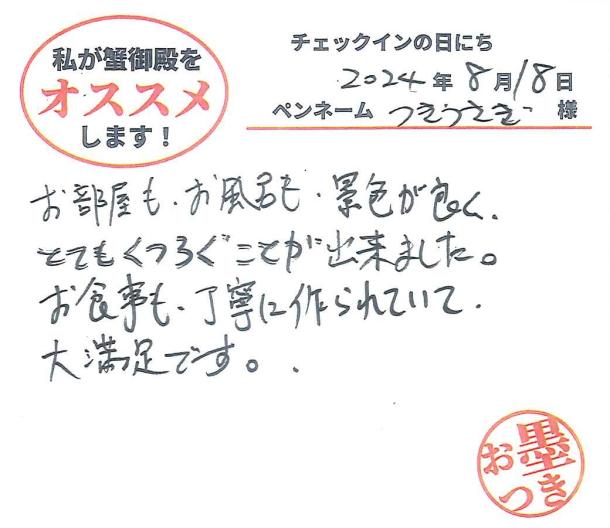 私が蟹御殿を
オススメ
します!
チェックインの日にち
2024年8月18日
ペンネーム つきうさぎ 様
お部屋も、お風呂も、景色が良く、
とてもくつろぐことが出来ました。
お食事も、丁寧に作られていて、
大満足です。
お墨
つき